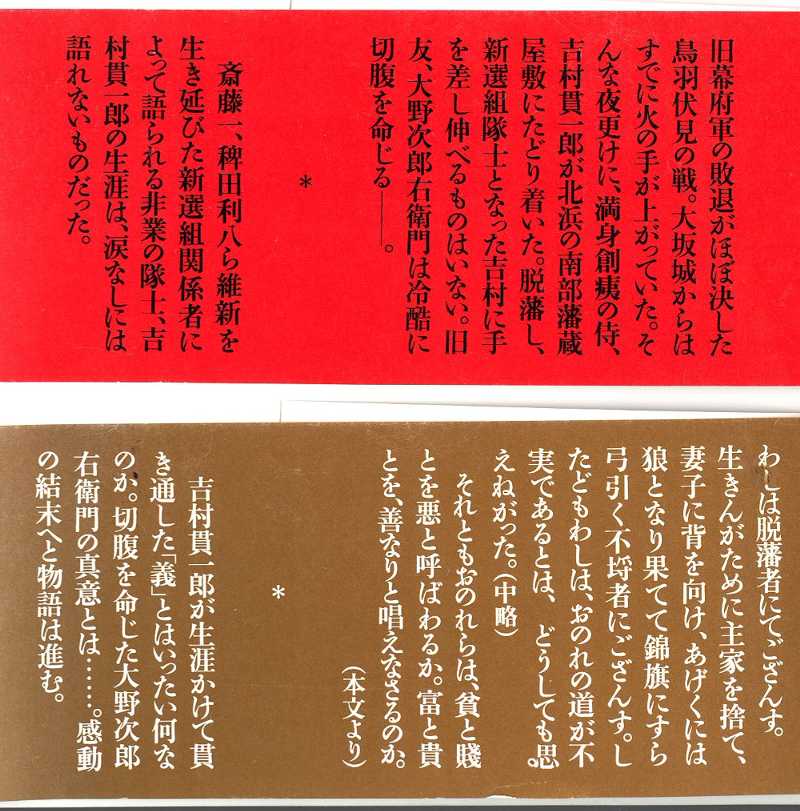 旧幕府軍の敗退がほぼ決した
鳥羽伏見の戦。大坂城からは
すでに火の手が上がっていた。そ
んな夜更けに、満身創痍の侍、
吉村貫一郎が北浜の南部藩蔵
屋敷にたどり着いた。脱藩し、
新選組隊士となった吉村に手
を差し伸べるものはいない。旧
友、大野次郎右衛門は冷酷に
切腹を命じる――。
*
斎藤一、稗田利八ら維新を
生き延びた新選組関係者に
よって語られる非業の隊士、吉
村貫一郎の生涯は、涙なしには
語れないものだった。
わしは脱藩者にてござんす。
生きんがために主家を捨て、
妻子に背を向け、あげくには
狼となり果てて錦旗にすら
弓引く不埒者にござんす。し
たどもわしは、おのれの道が不
実であるとは、どうしても思
えねがった。(中略)
それともおのれらは、貧と賤
とを悪と呼ばわるか。富と貴
とを、善なりと唱えなさるのか。
(本文より)
*
吉村貫一郎が生涯かけて貫
き通した「義」とはいったい何な
のか。切腹を命じた大野次郎
右衛門の真意とは……。感動
の結末へと物語は進む。